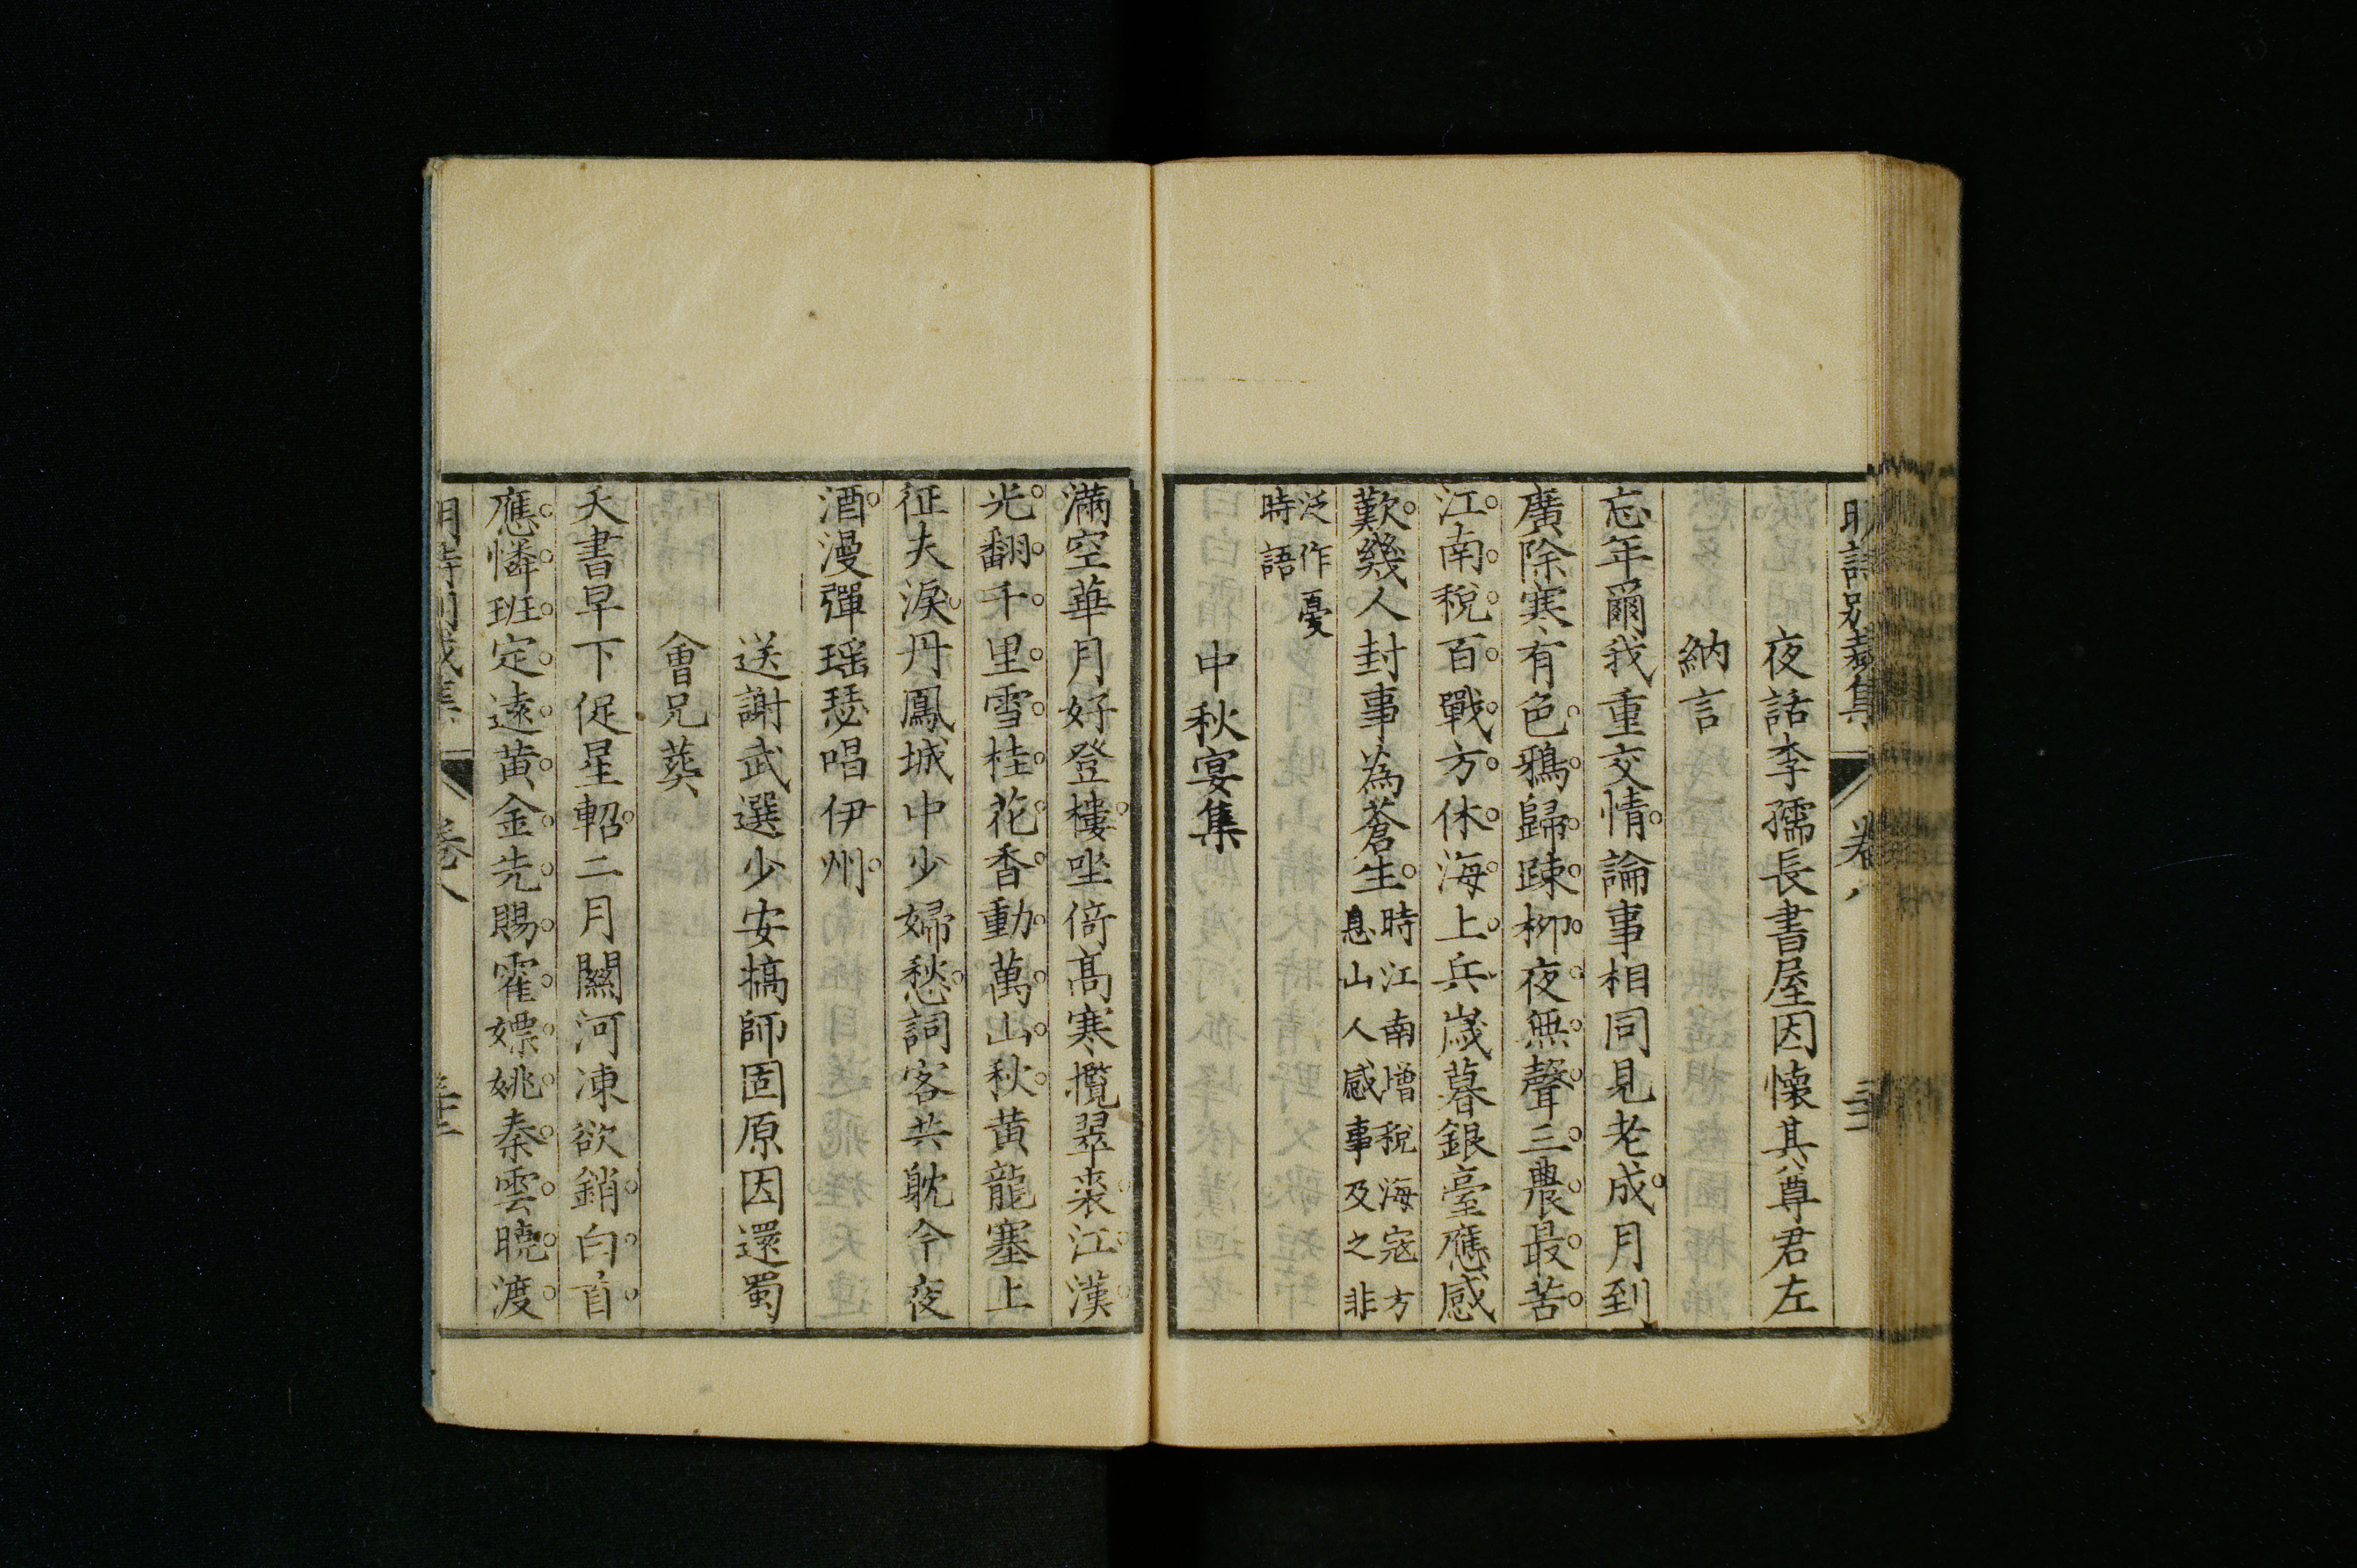 夜話李孺長書屋因懷其尊君左
納言
忘年爾我重交情論事相同見老成月到
廣除寒有色鴉歸踈柳夜無聲三農最苦
江南稅百戰方休海上兵歲暮銀臺應感
歎幾人封事為蒼生時江南增稅海寇方
息山人感事及之非
泛作憂
時語
中秋宴集
滿空華月好登樓坐倚高寒攬翠裘江漢
光翻千里雪桂花香動萬山秋黃龍塞上
征夫淚丹鳳城中少婦愁詞客共躭今夜
酒漫彈瑶瑟唱伊州
送謝武選少安犒師固原因還蜀
會兄葬
天書早下促星軺二月關河凍欲銷白首
應憐班定遠黃金先賜霍嫖姚秦雲曉渡